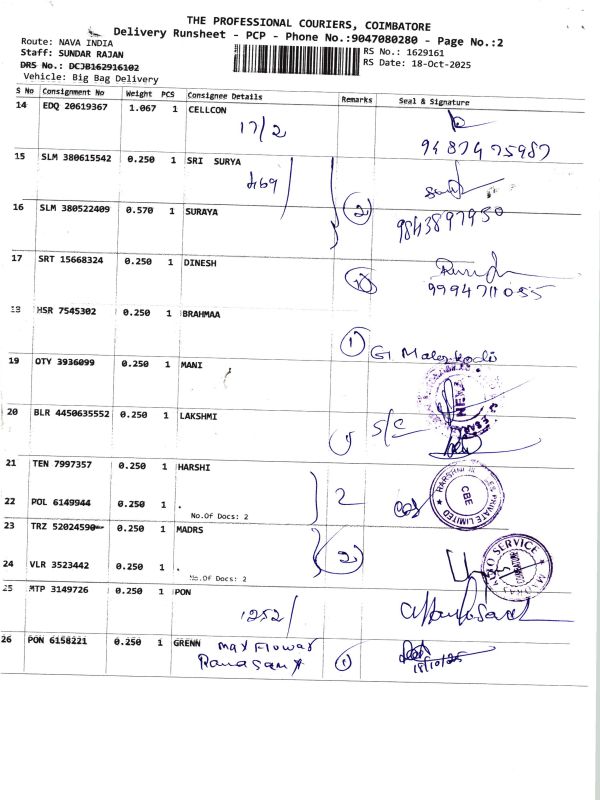 THE PROFESSIONAL COURIERS, COIMBATORE
Delivery Runsheet - PCP - Phone No.:9047080280 - Page No.:2
Route: NAVA INDIA
Staff: SUNDAR RAJAN
DRS No.: DCJB162916102
Vehicle: Big Bag Delivery
RS No.: 1629161
RS Date: 18-Oct-2025
S No Consignment No Weight PCS Consignee Details Remarks Seal & Signature
14 EDQ 20619367 1.067 1 CELLCON
17/2
9487475987
15 SLM 380615542 0.250 1 SRI SURYA
469
16 SLM 380522409 0.570 1 SURAYA
2
9843897950
17 SRT 15668324 0.250 1 DINESH
9994711055
18 HSR 7545302 0.250 1 BRAHMAA
1
19 OTY 3936099 0.250 1 MANI
20 BLR 4450635552 0.250 1 LAKSHMI
S/C
21 TEN 7997357 0.250 1 HARSHI
2
22 POL 6149944 0.250 1 .
No.Of Docs: 2
PRIVATE LIMITED
CBE
23 TRZ 52024590 0.250 1 MADRS
2
24 VLR 3523442 0.250 1 .
No.Of Docs: 2
SERVICE
25 MTP 3149726 0.250 1 PON
1252/
26 PON 6158221 0.250 1 GRENN
Max Flower
1
18/10/25